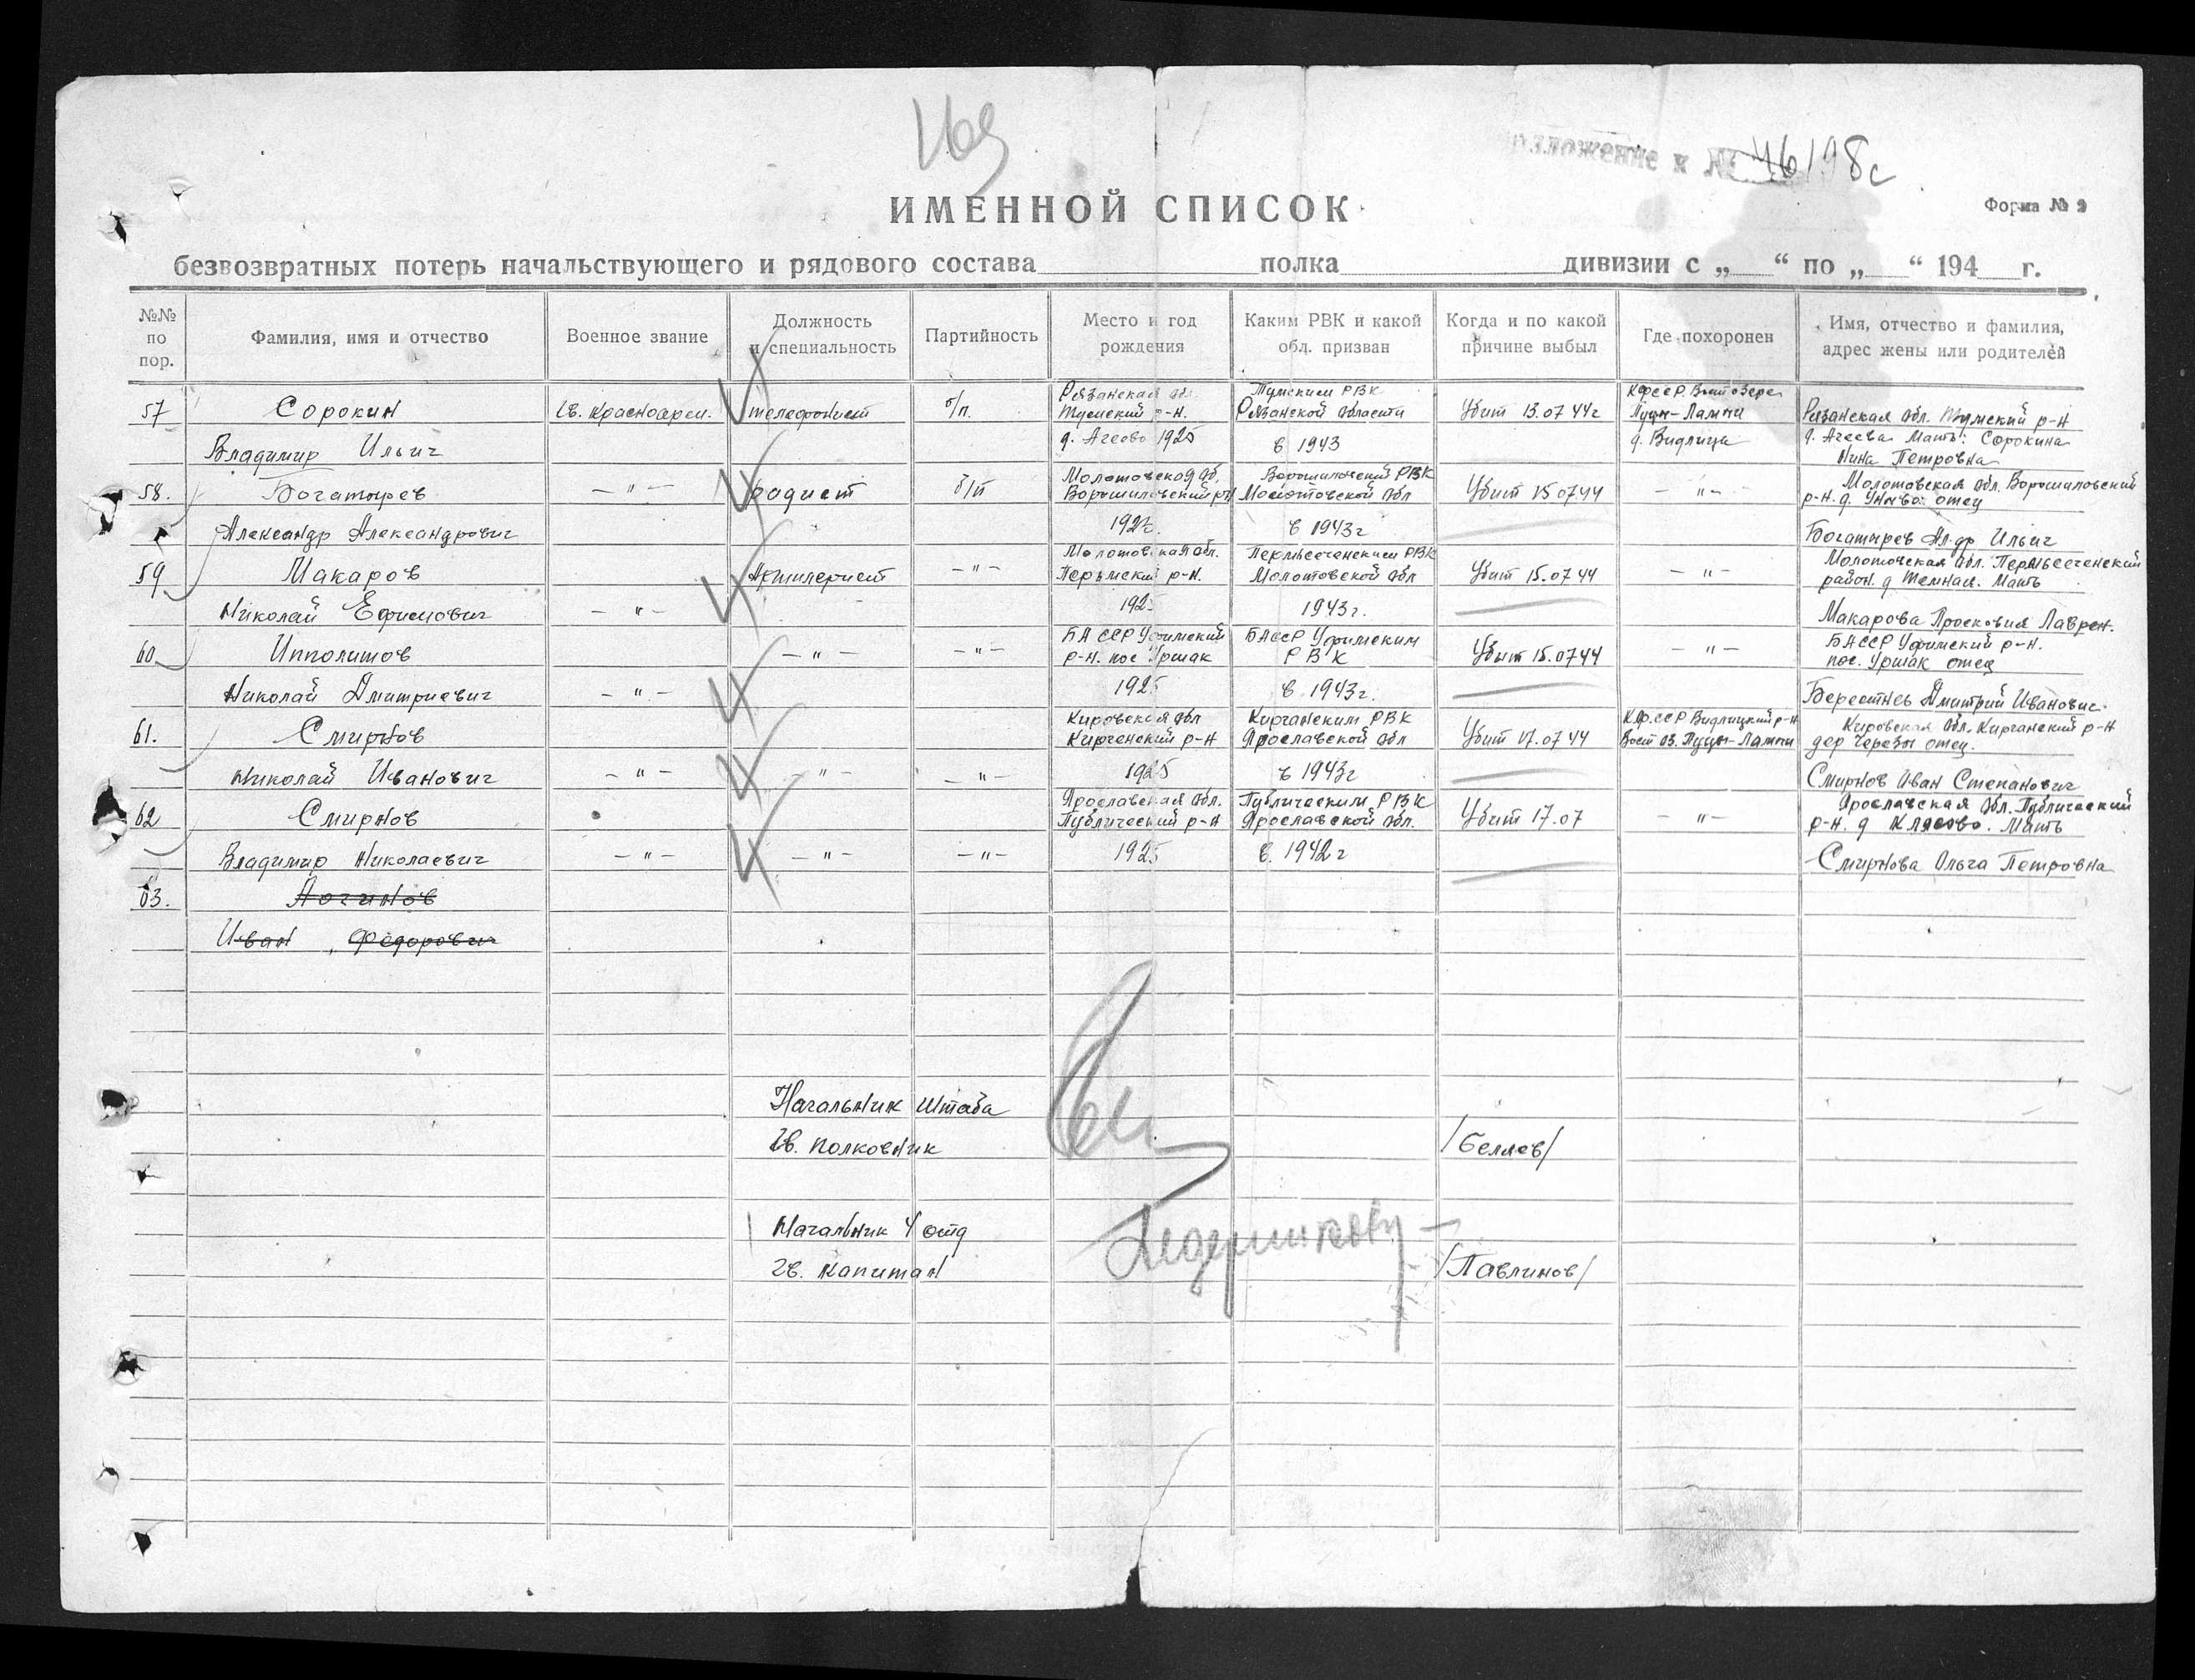 169
Приложение к № 46198с
ИМЕННОЙ СПИСОК
Форма № 2
безвозвратных потерь начальствующего и рядового состава полка дивизии с „ “ по „ “ 194 г.
№№ по пор.
Фамилия, имя и отчество
Военное звание
Должность и специальность
Партийность
Место и год рождения
Каким РВК и какой обл. призван
Когда и по какой причине выбыл
Где похоронен
Имя, отчество и фамилия, адрес жены или родителей
57 Сорокин Гв. Красноарм. телефонист б/п.
Владимир Ильич
Рязанская обл.
Тумский р-н.
д. Агеево 1925
Тумским РВК
Рязанской области
в 1943
Убит 13.07 44г
КФССР
Пуцы-Лампи
д. Видлица
Рязанская обл. Тумский р-н
д. Агеева Мать: Сорокина
Нина Петровна
58. Богатырев —"— радист б/п
Александр Александрович
Молотовская об.
Ворошиловский р-н
192
Ворошиловский РВК
Молотовской обл
в 1943г
Убит 15 07 44
—"—
Молотовская обл. Ворошиловский
р-н. д. отец
Богатырев Ал-др Ильич
59 Макаров Артилерист —"—
Николай Ефимович —"—
Молотовская обл.
Пермский р-н.
192
РВК
Молотовской обл
1943г.
Убит 15.07 44
—"—
Молотовская обл.
район. д Темная. Мать
Макарова Просковия Лаврен.
60 Ипполитов —"— —"—
Николай Дмитриевич —"—
БАССР Уфимский
р-н. пос Уршак
1925
БАССР Уфимским
РВК
в 1943г.
Убит 15.07 44
—"—
БАССР Уфимский р-н.
пос. Уршак отец
Берестнев Дмитрий Иванович
61. Смирнов
Николай Иванович —"— —"— —"—
Кировская обл
р-н
1925
РВК
Ярославской обл
в 1943г
Убит 17.07 44
КФ.ССР Видлицкий р-н
Вост оз. Пуцы-Лампи
Кировская обл. р-н
дер отец.
Смирнов Иван Степанович
62 Смирнов
Владимир Николаевич —"— —"— —"—
Ярославская обл.
Публический р-н
1925
Публическим РВК
Ярославской обл.
в. 1942г
Убит 17.07
—"—
Ярославская обл. Публический
р-н. д Клясово. Мать
Смирнова Ольга Петровна
63. Логинов
Иван Федорович
Начальник Штаба
Гв. полковник /Беляев/
Начальник 4 отд
Гв. капитан /Павлинов/